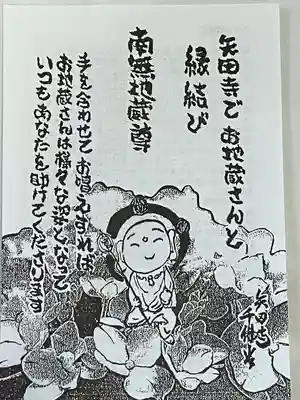 矢田寺で お地蔵さんと
縁結び
南無地蔵尊
手を合わせてお唱えすれば
お地蔵さんは様々な姿となって
いつもあなたを助けてくださります
矢田寺